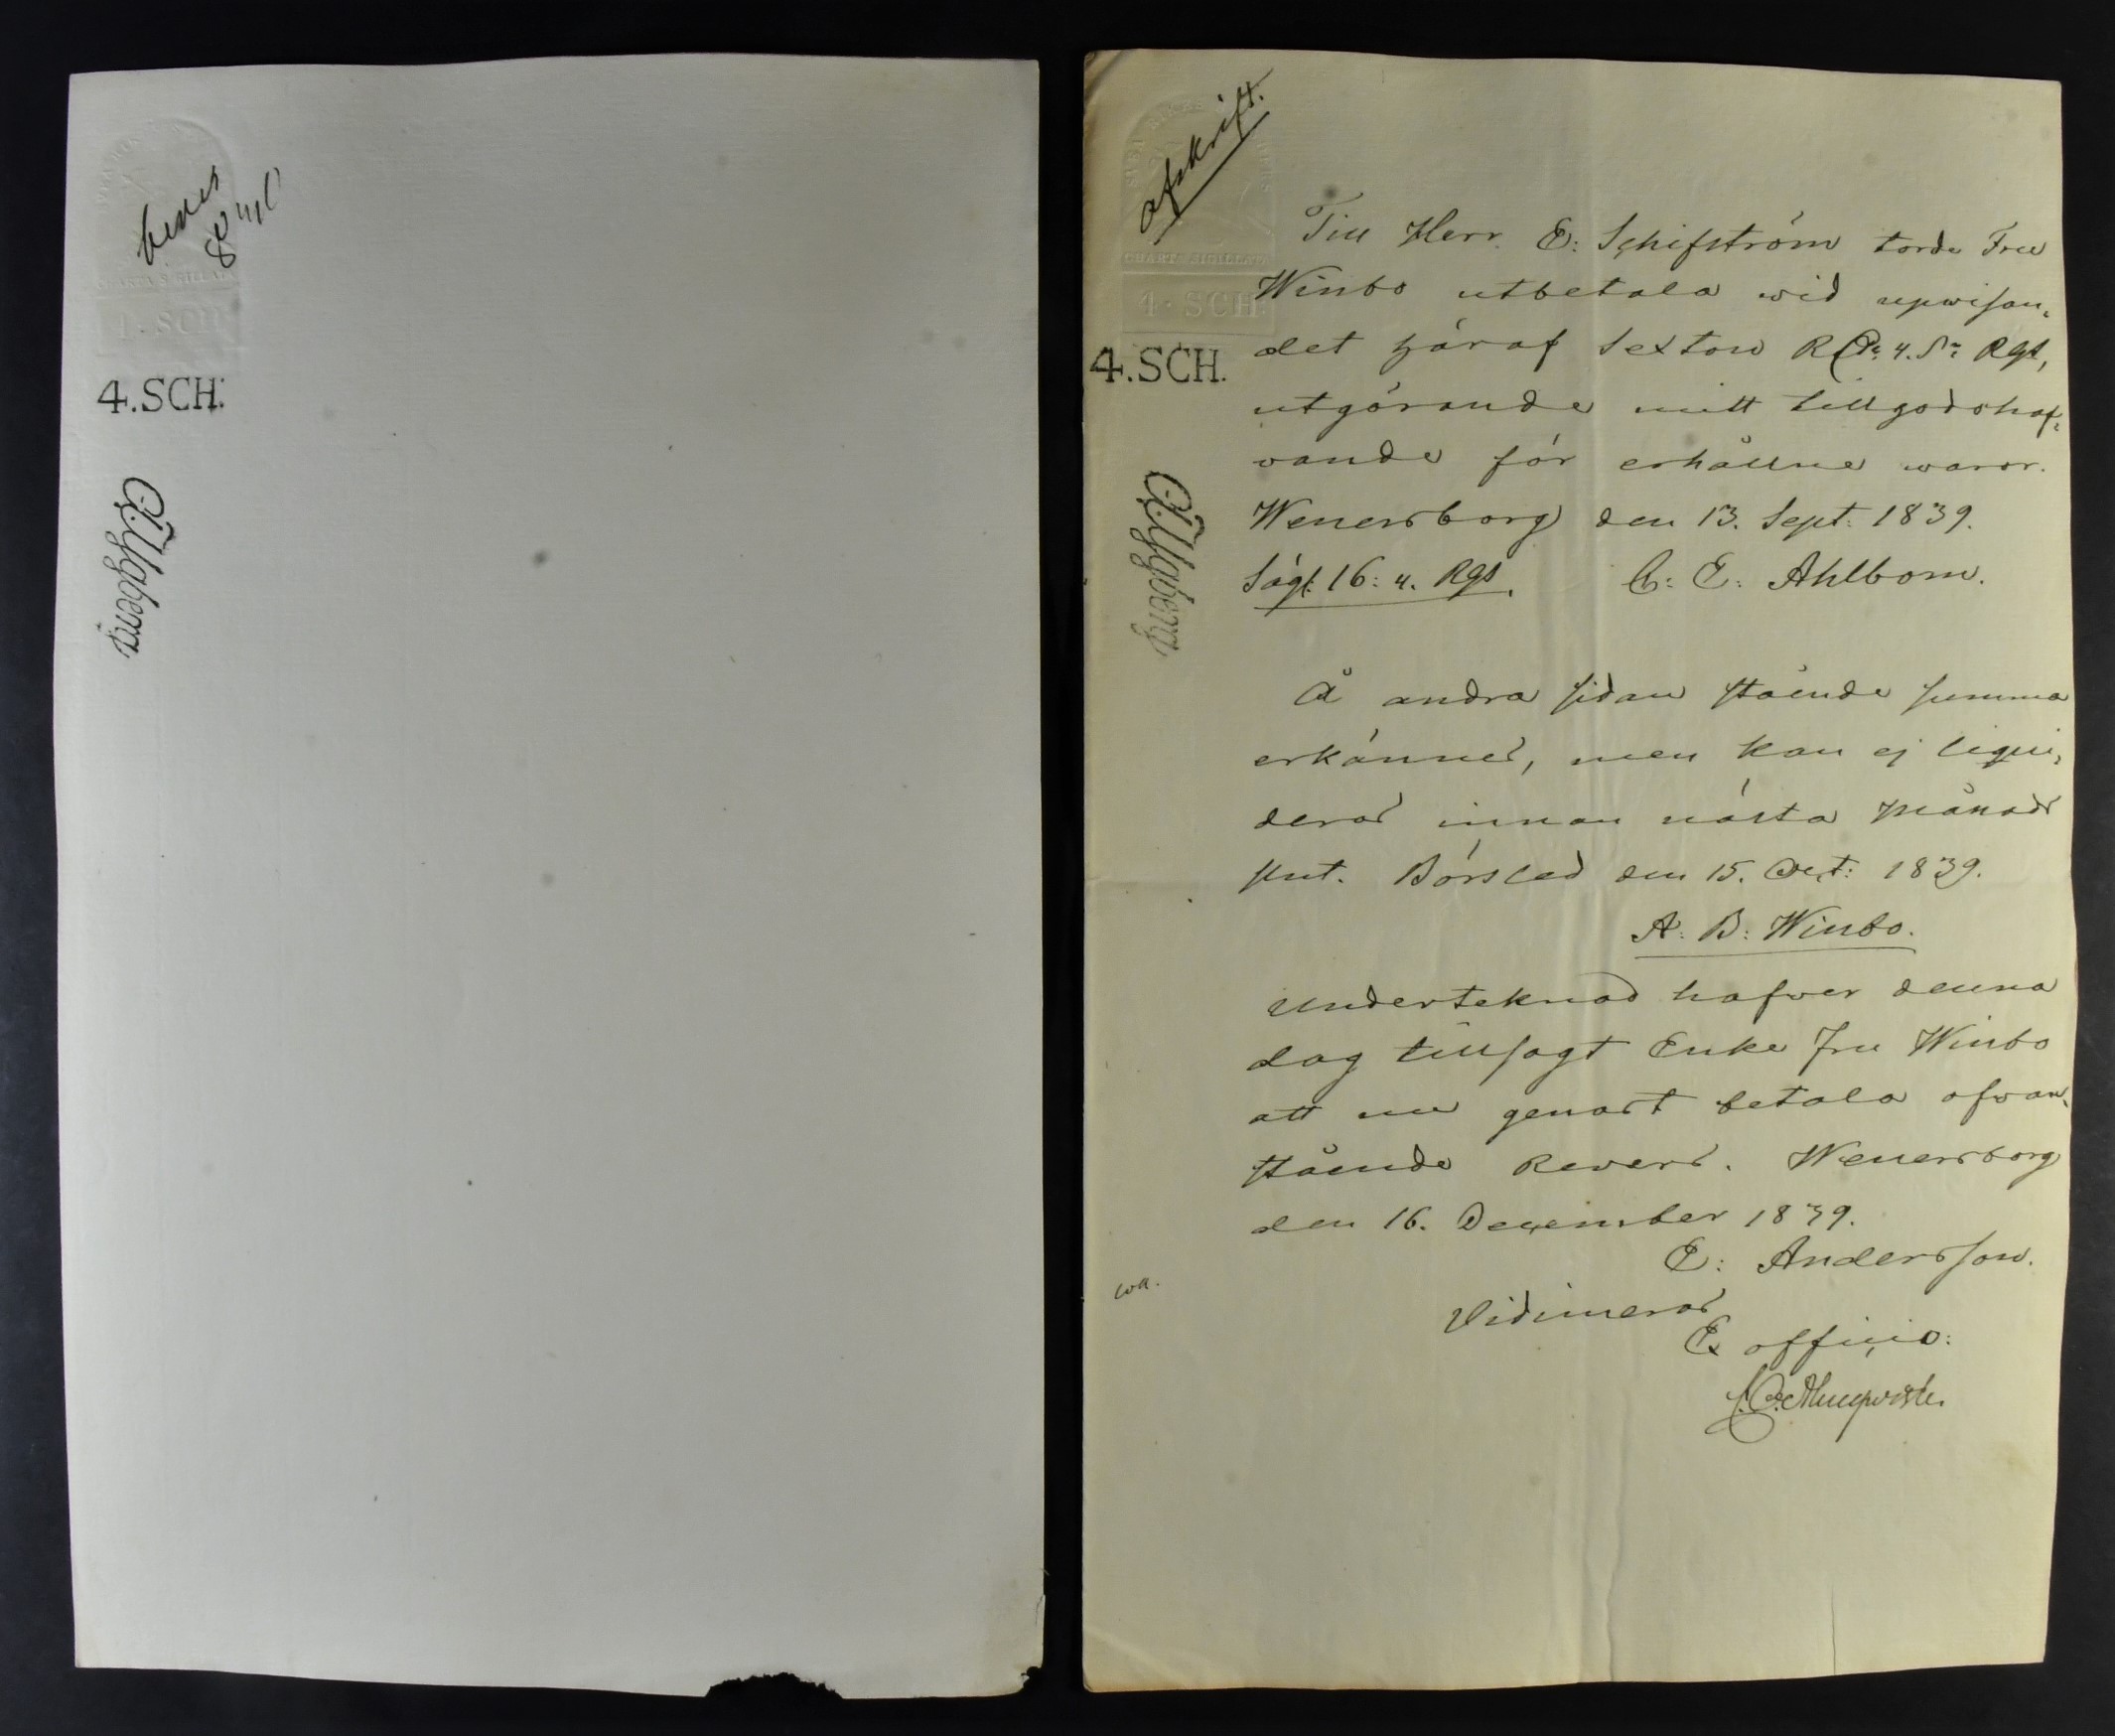 4.SCH:
Afskrift.
CHARTA SIGILLATA
4 · SCH:
4.SCH.
Till Herr E: Schifström torde Fru
Winbo utbetala wid upwisan-
det häraf Sexton RD: 4. s: Rgs,
utgörande mitt tillgodohaf-
vande för erhållne waror.
Wenersborg den 13. Sept: 1839.
Säg. 16: 4. Rgs. C: E: Ahlbom.
Å andra sidan stående summa
erkännes, men kan ej liqui-
deras innan nästa månads
slut. Börsled den 15. Oct: 1839.
A: B: Winbo.
Underteknad hafver denna
dag tillsagt Enke Fru Winbo
att nu genast betala ofvan-
stående Revers. Wenersborg
den 16. December 1839.
E: Andersson.
coll.
Vidimeras
Ex officio:
Almqvist.